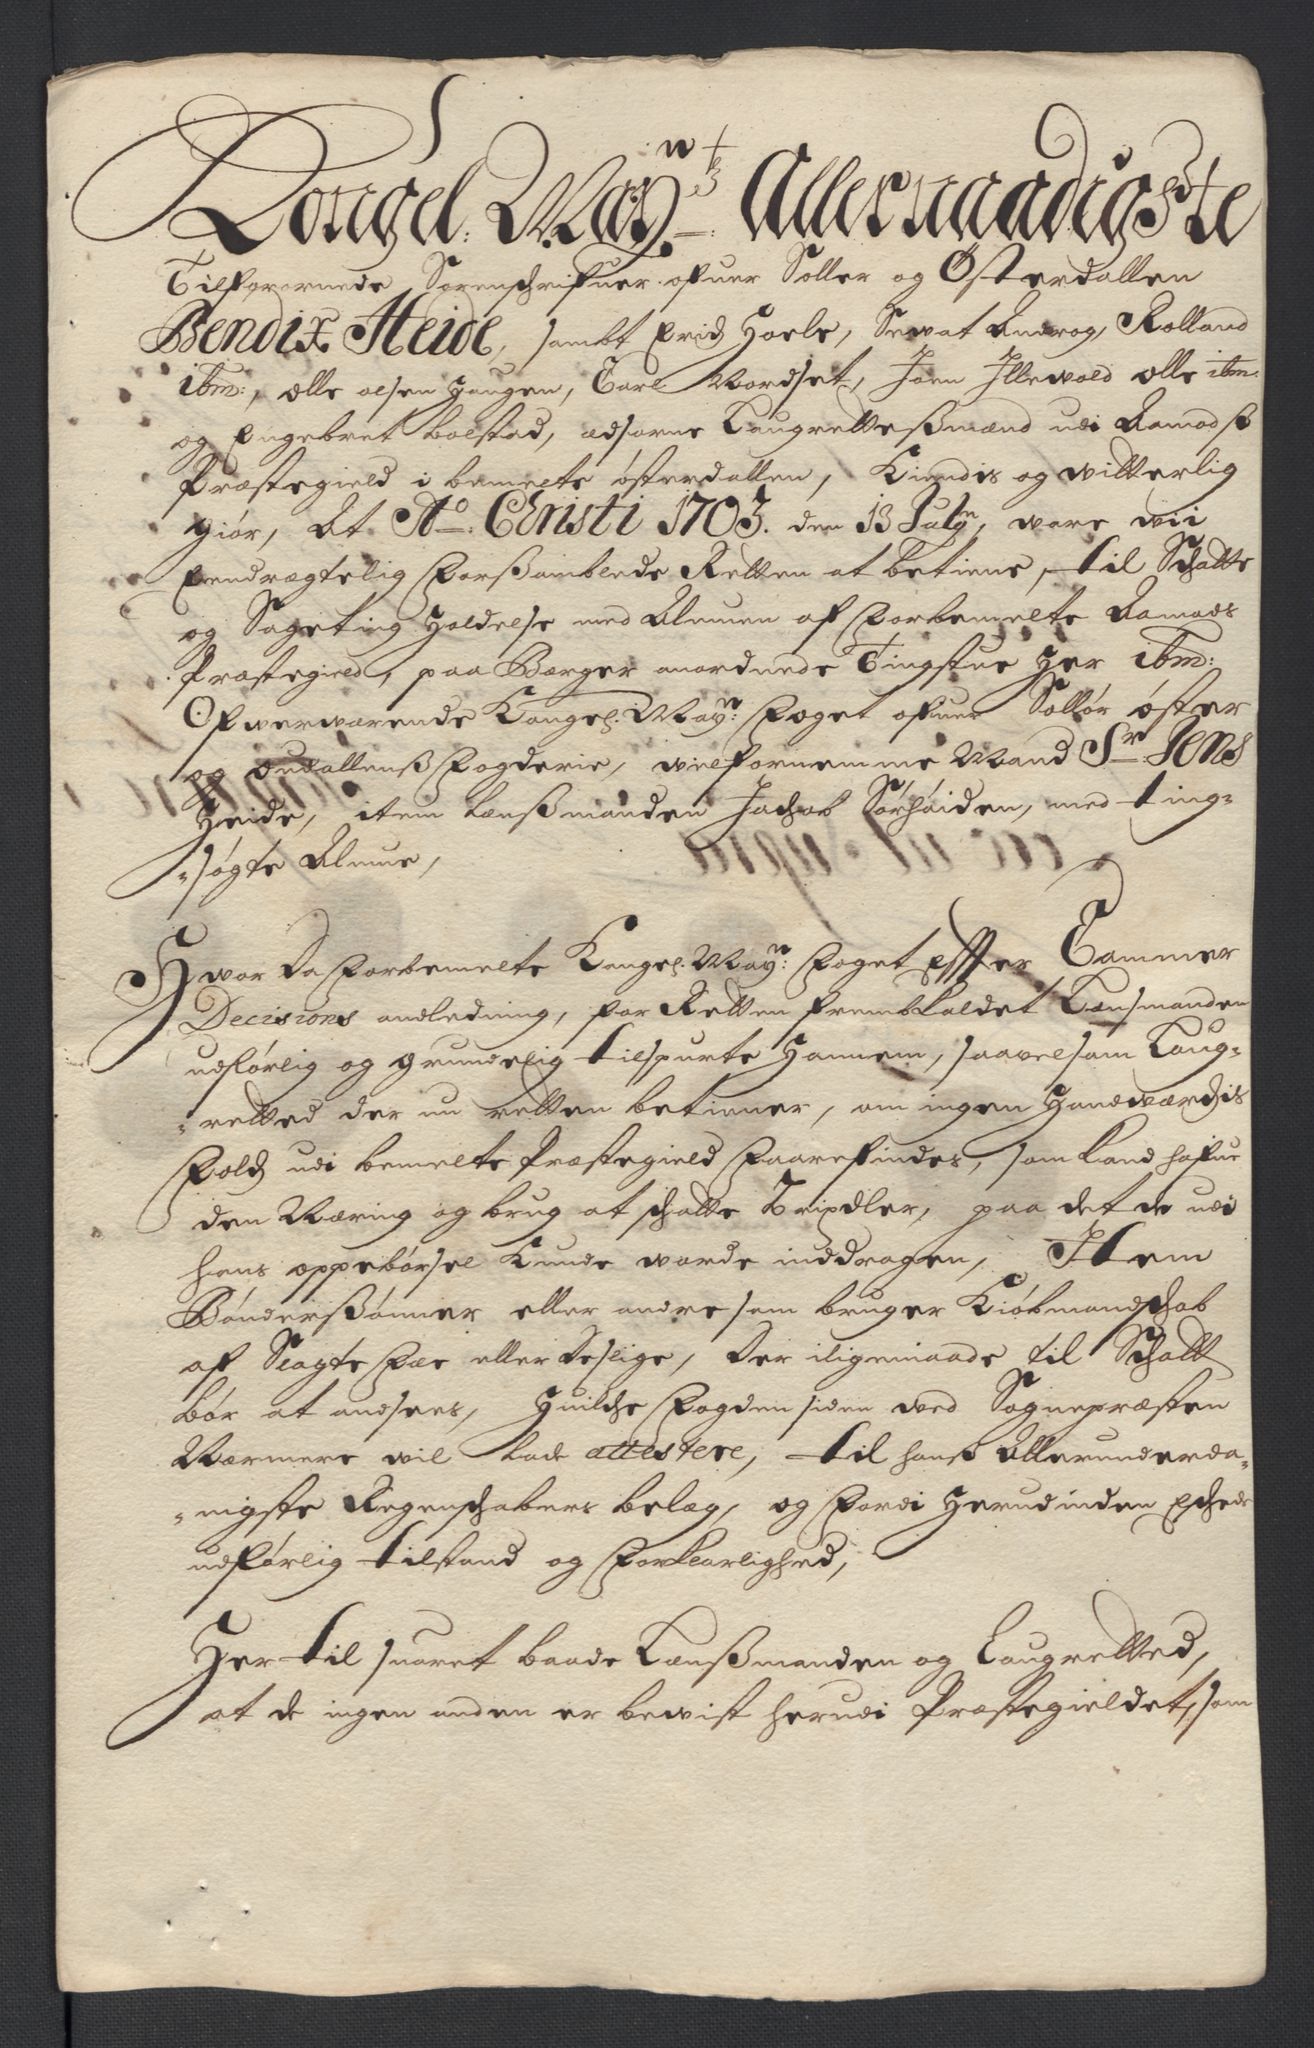 Kongel: May:ts Allernaadigste
Tilforornede Sorenschrifuer ofuer Soller og Østerdallen
Bendix Heide, sambt Erich Hoele, Rolland
ibm:, Olle olsen Haugen, Carl Nordset, Joen Illevold olle ibm:
og Engebret bolstad, edsorne Laugrettesmænd udi Aamodss
Præstegield i bemelte østerdallen, Kiendis og witterlig
giør, At Ao: Christi 1703. den 13 Julÿ, ware wii
Eendrægtelig Forsamblede Retten at betiene, til Schatte
og Sageting Holdelse med Almuen af Forbemelte Aamods
Præstegield, paa Berger anordnede Tingstue Her ibm:
Ofwerwærende Kongel: Maytz: Foget ofuer Sollør øster
og oudallens Fogderie, welfornemme Mand Sr. Jens
Heide, item Lensmanden Jachob Sørhøiden, med ting-
-søgte Almue,
Hvor da Forbemelte Kongel: May: Foget Effter Cammer
Decisions andledning, for Retten fremkaldet Lensmanden
udførlig og grundelig tilspurte Hannem, saavelsom Laug-
-retted der nu retten betiener, om ingen Handværchs
Folch udi bemelte Præstegield Paarefindes, som kand hafue
den Næring og brug at schatte Bør af, paa det de udi
hans oppebørsel Kunde worde inddragen, Item
Bønderssønner eller andre som bruger Kiøbmandschab
af Slagte Fæe eller deslige, der iligemaade til Schatt
bør at andsees, Huilche Fogden siden wed Sognepræsten
Nærmere wil lade attestere, til hans Allerunderda-
-nigste Regenschabers belæg, og Fordi Herudinden Eschede
udførlig tilstand og Forklarlighed,
Her til suaret baade Lensmanden og Laugretted,
at de ingen anden er bewist herudi Præstegieldet, som